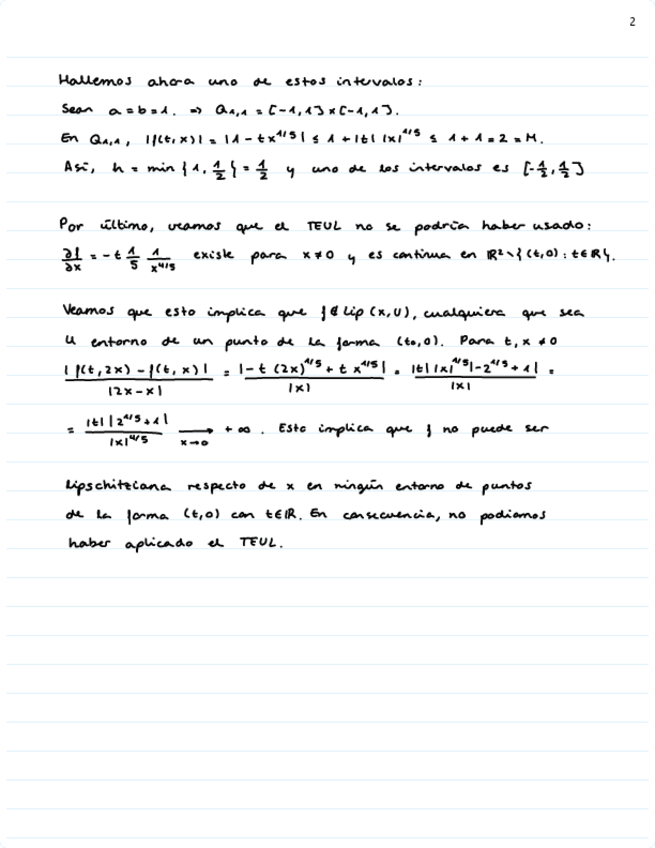 2
Hallemos ahora uno de estos intervalos:
Sean a=b=1. ⇒ Q₁,₁ = [-1,1]×[-1,1].
En Q₁,₁, |f(t,x)| = |1 - tx^{1/5}| ≤ 1 + |t| |x|^{1/5} ≤ 1+1=2=M.
Así, h = min {1, 1/2} = 1/2 y uno de los intervalos es [-1/2, 1/2]
Por último, veamos que el TEUL no se podría haber usado:
∂f/∂x = -t 1/5 1/x^{4/5} existe para x≠0 y es continua en ℝ²\{(t,0): t∈ℝ}.
Veamos que esto implica que f∉Lip(x,U), cualquiera que sea
U entorno de un punto de la forma (t₀,0). Para t, x ≠0
|f(t,2x) - f(t,x)| / |2x-x| = |-t (2x)^{1/5} + t x^{1/5}| / |x| = |t| |x|^{1/5} |-2^{1/5}+1| / |x| =
= |t| |2^{1/5}+1| / |x|^{4/5} →_{x→0} +∞. Esto implica que f no puede ser
lipschitziana respecto de x en ningún entorno de puntos
de la forma (t,0) con t∈ℝ. En consecuencia, no podíamos
haber aplicado el TEUL.